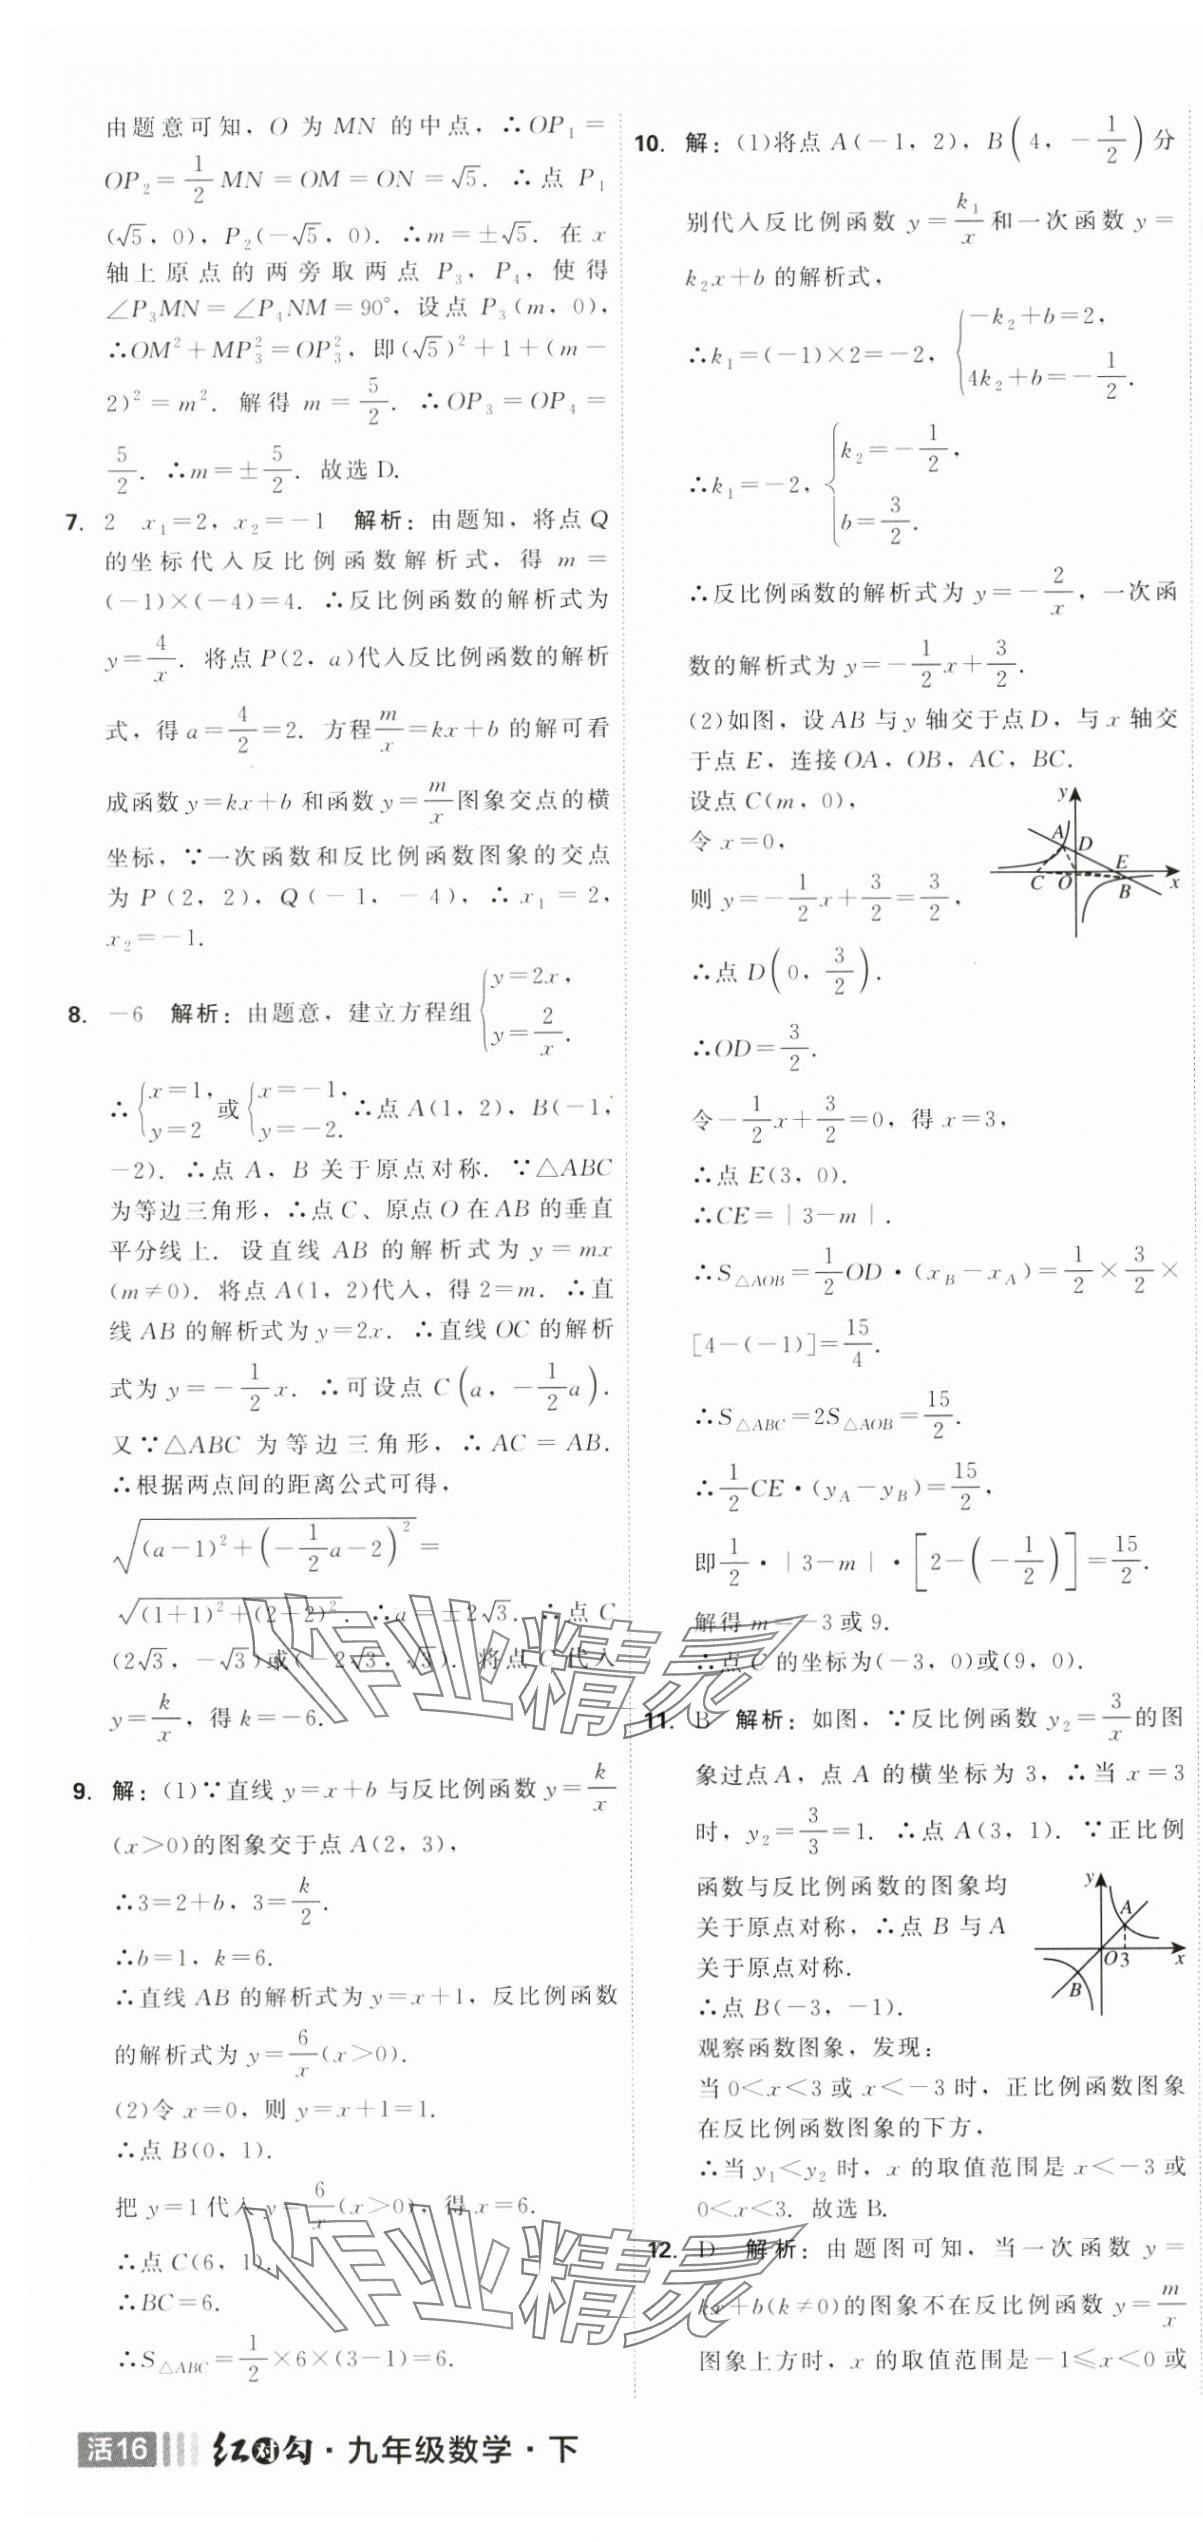 由题意可知，O 为 MN 的中点，∴OP₁＝
OP₂＝1/2 MN＝OM＝ON＝√5．∴点 P₁
(√5，0)，P₂(－√5，0)．∴m＝±√5．在 x
轴上原点的两旁取两点 P₃，P₄，使得
∠P₃MN＝∠P₄NM＝90°，设点 P₃(m，0)，
∴OM²＋MP₃²＝OP₃²，即(√5)²＋1＋(m－
2)²＝m²．解得 m＝5/2．∴OP₃＝OP₄＝
5/2．∴m＝±5/2．故选 D.
7. 2　x₁＝2，x₂＝－1　解析：由题知，将点 Q
的坐标代入反比例函数解析式，得 m＝
(－1)×(－4)＝4．∴反比例函数的解析式为
y＝4/x．将点 P(2，a)代入反比例函数的解析
式，得 a＝4/2＝2．方程 m/x＝kx＋b 的解可看
成函数 y＝kx＋b 和函数 y＝m/x 图象交点的横
坐标，∵一次函数和反比例函数图象的交点
为 P(2，2)，Q(－1，－4)，∴x₁＝2，
x₂＝－1.
8. －6　解析：由题意，建立方程组{y＝2x，y＝2/x．
∴{x＝1，y＝2 或{x＝－1，y＝－2. ∴点 A(1，2)，B(－1，
－2)．∴点 A，B 关于原点对称．∵△ABC
为等边三角形，∴点 C、原点 O 在 AB 的垂直
平分线上．设直线 AB 的解析式为 y＝mx
(m≠0)．将点 A(1，2)代入，得 2＝m．∴直
线 AB 的解析式为 y＝2x．∴直线 OC 的解析
式为 y＝－1/2 x．∴可设点 C(a，－1/2 a)．
又∵△ABC 为等边三角形，∴AC＝AB.
∴根据两点间的距离公式可得，
√((a－1)²＋(－1/2 a－2)²)＝
√((1＋1)²＋(2＋2)²)．∴a＝±2√3．∴点 C
(2√3，－√3)或(－2√3，√3)．将点 C 代入
y＝k/x，得 k＝－6.
9. 解：(1)∵直线 y＝x＋b 与反比例函数 y＝k/x
(x＞0)的图象交于点 A(2，3)，
∴3＝2＋b，3＝k/2.
∴b＝1，k＝6.
∴直线 AB 的解析式为 y＝x＋1，反比例函数
的解析式为 y＝6/x(x＞0).
(2)令 x＝0，则 y＝x＋1＝1.
∴点 B(0，1).
把 y＝1 代入 y＝6/x(x＞0)，得 x＝6.
∴点 C(6，1).
∴BC＝6.
∴S△ABC＝1/2×6×(3－1)＝6.
10. 解：(1)将点 A(－1，2)，B(4，－1/2)分
别代入反比例函数 y＝k₁/x 和一次函数 y＝
k₂x＋b 的解析式，
∴k₁＝(－1)×2＝－2，{－k₂＋b＝2，4k₂＋b＝－1/2.
∴k₁＝－2，{k₂＝－1/2，b＝3/2.
∴反比例函数的解析式为 y＝－2/x，一次函
数的解析式为 y＝－1/2 x＋3/2.
(2)如图，设 AB 与 y 轴交于点 D，与 x 轴交
于点 E，连接 OA，OB，AC，BC.
设点 C(m，0)，
令 x＝0，
则 y＝－1/2 x＋3/2＝3/2，
y A D E C O B x
∴点 D(0，3/2).
∴OD＝3/2.
令－1/2 x＋3/2＝0，得 x＝3，
∴点 E(3，0).
∴CE＝|3－m|.
∴S△AOB＝1/2 OD·(xB－xA)＝1/2×3/2×
[4－(－1)]＝15/4.
∴S△ABC＝2S△AOB＝15/2.
∴1/2 CE·(yA－yB)＝15/2，
即 1/2·|3－m|·[2－(－1/2)]＝15/2.
解得 m＝－3 或 9.
∴点 C 的坐标为(－3，0)或(9，0).
11. B　解析：如图，∵反比例函数 y₂＝3/x 的图
象过点 A，点 A 的横坐标为 3，∴当 x＝3
时，y₂＝3/3＝1．∴点 A(3，1)．∵正比例
函数与反比例函数的图象均
关于原点对称，∴点 B 与 A
关于原点对称.
y A O 3 x B
∴点 B(－3，－1).
观察函数图象，发现：
当 0＜x＜3 或 x＜－3 时，正比例函数图象
在反比例函数图象的下方，
∴当 y₁＜y₂ 时，x 的取值范围是 x＜－3 或
0＜x＜3．故选 B.
12. D　解析：由题图可知，当一次函数 y＝
kx＋b(k≠0)的图象不在反比例函数 y＝m/x
图象上方时，x 的取值范围是－1≤x＜0 或
作业精灵
作业精灵
活16 红对勾·九年级数学·下